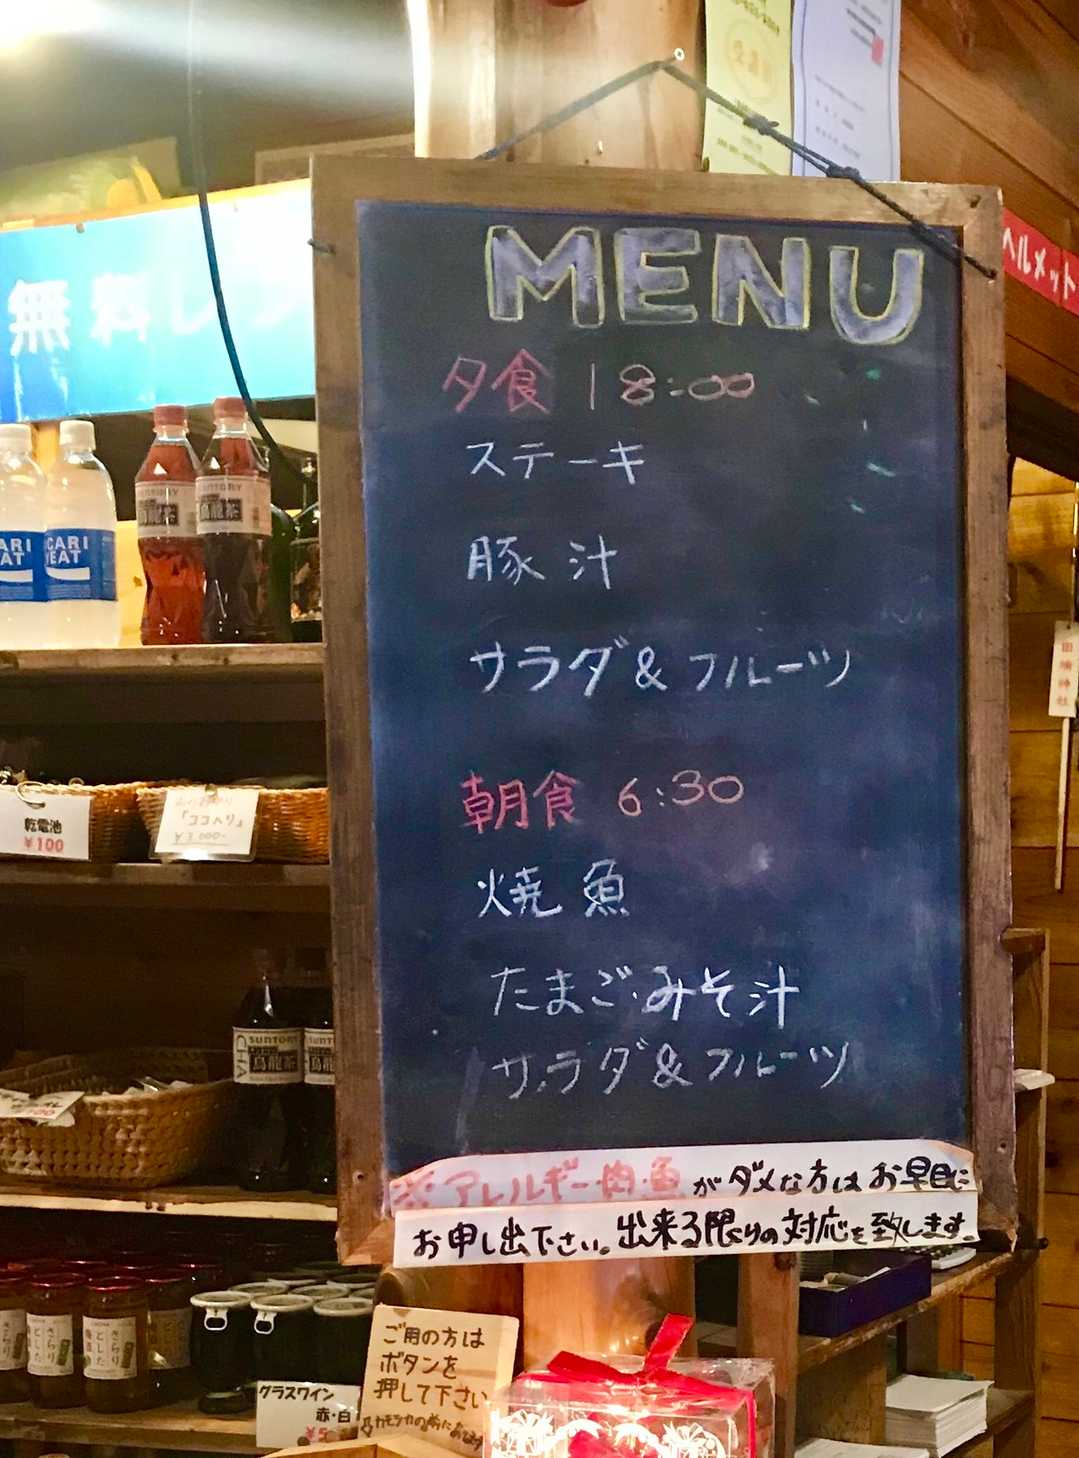 MENU
夕食 18:00
ステーキ
豚汁
サラダ&フルーツ
朝食 6:30
焼魚
たまごみそ汁
サラダ&フルーツ
※アレルギー・肉・魚がダメな方はお早目に
お申し出下さい。出来る限りの対応を致します。
無料レ
ヘルメット
CARI
EAT
CARI
EAT
SUNTORY
烏龍茶
SUNTORY
烏龍茶
乾電池
¥100
「ココヘリ」
¥3,000-
SUNTORY
烏龍茶
CHA
SUNT
さらり
とした
梅酒
グラスワイン
赤・白
ご用の方は
ボタンを
押して下さい